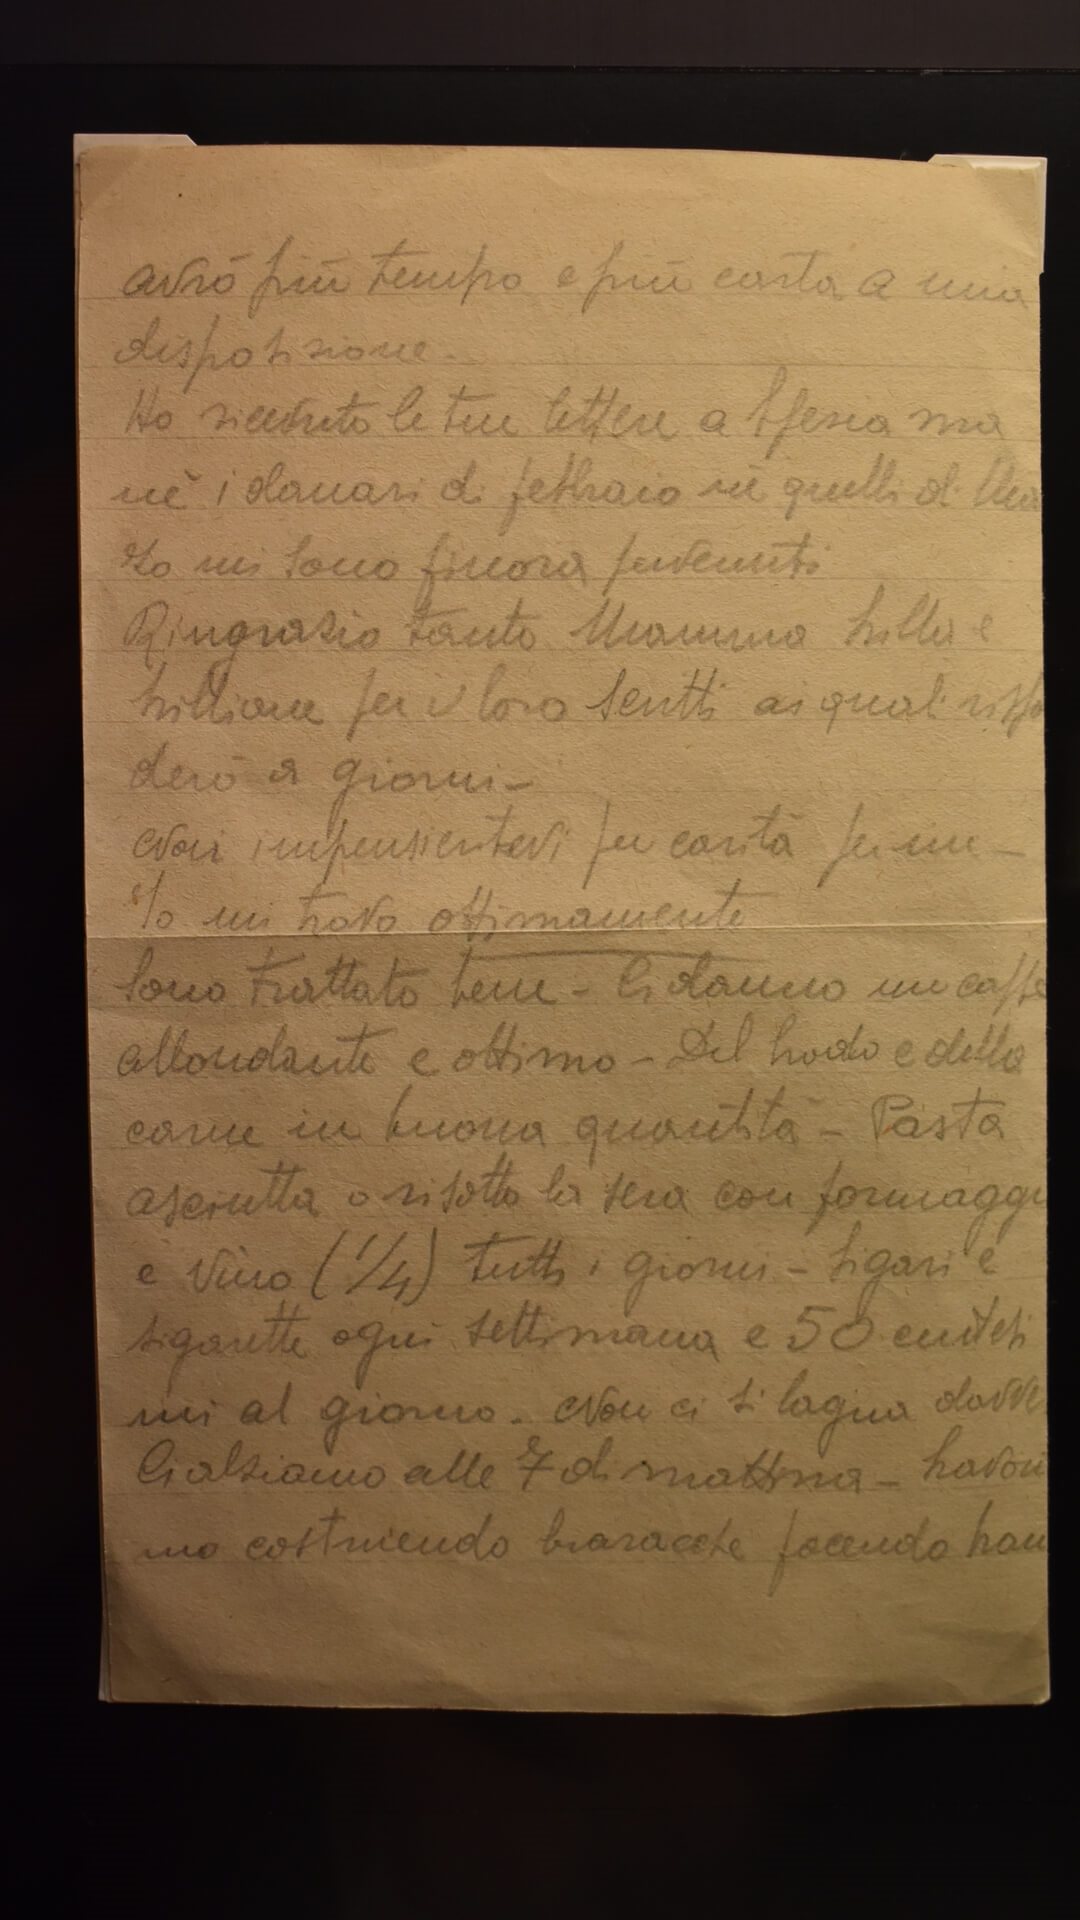 avrò più tempo e più carta a mia
disposizione.
Ho ricevuto le tue lettere a ma
nè i danari di febbraio nè quelli di Mar
zo mi sono finora pervenuti
Ringrazio tanto Mamma e
per i loro scritti ai quali rispon
derò a giorni -
Non impensieritevi per carità per me -
Io mi trovo ottimamente
Sono trattato bene - Ci danno un caffè
abbondante e ottimo - Del brodo e della
carne in buona quantità - Pasta
asciutta o risotto la sera con formaggio
e vino (1/4) tutti i giorni - Sigari e
sigarette ogni settimana e 50 centesi
mi al giorno. Non ci si lagna davve
Ci alziamo alle 7 di mattina -
mo costruendo baracche facendo